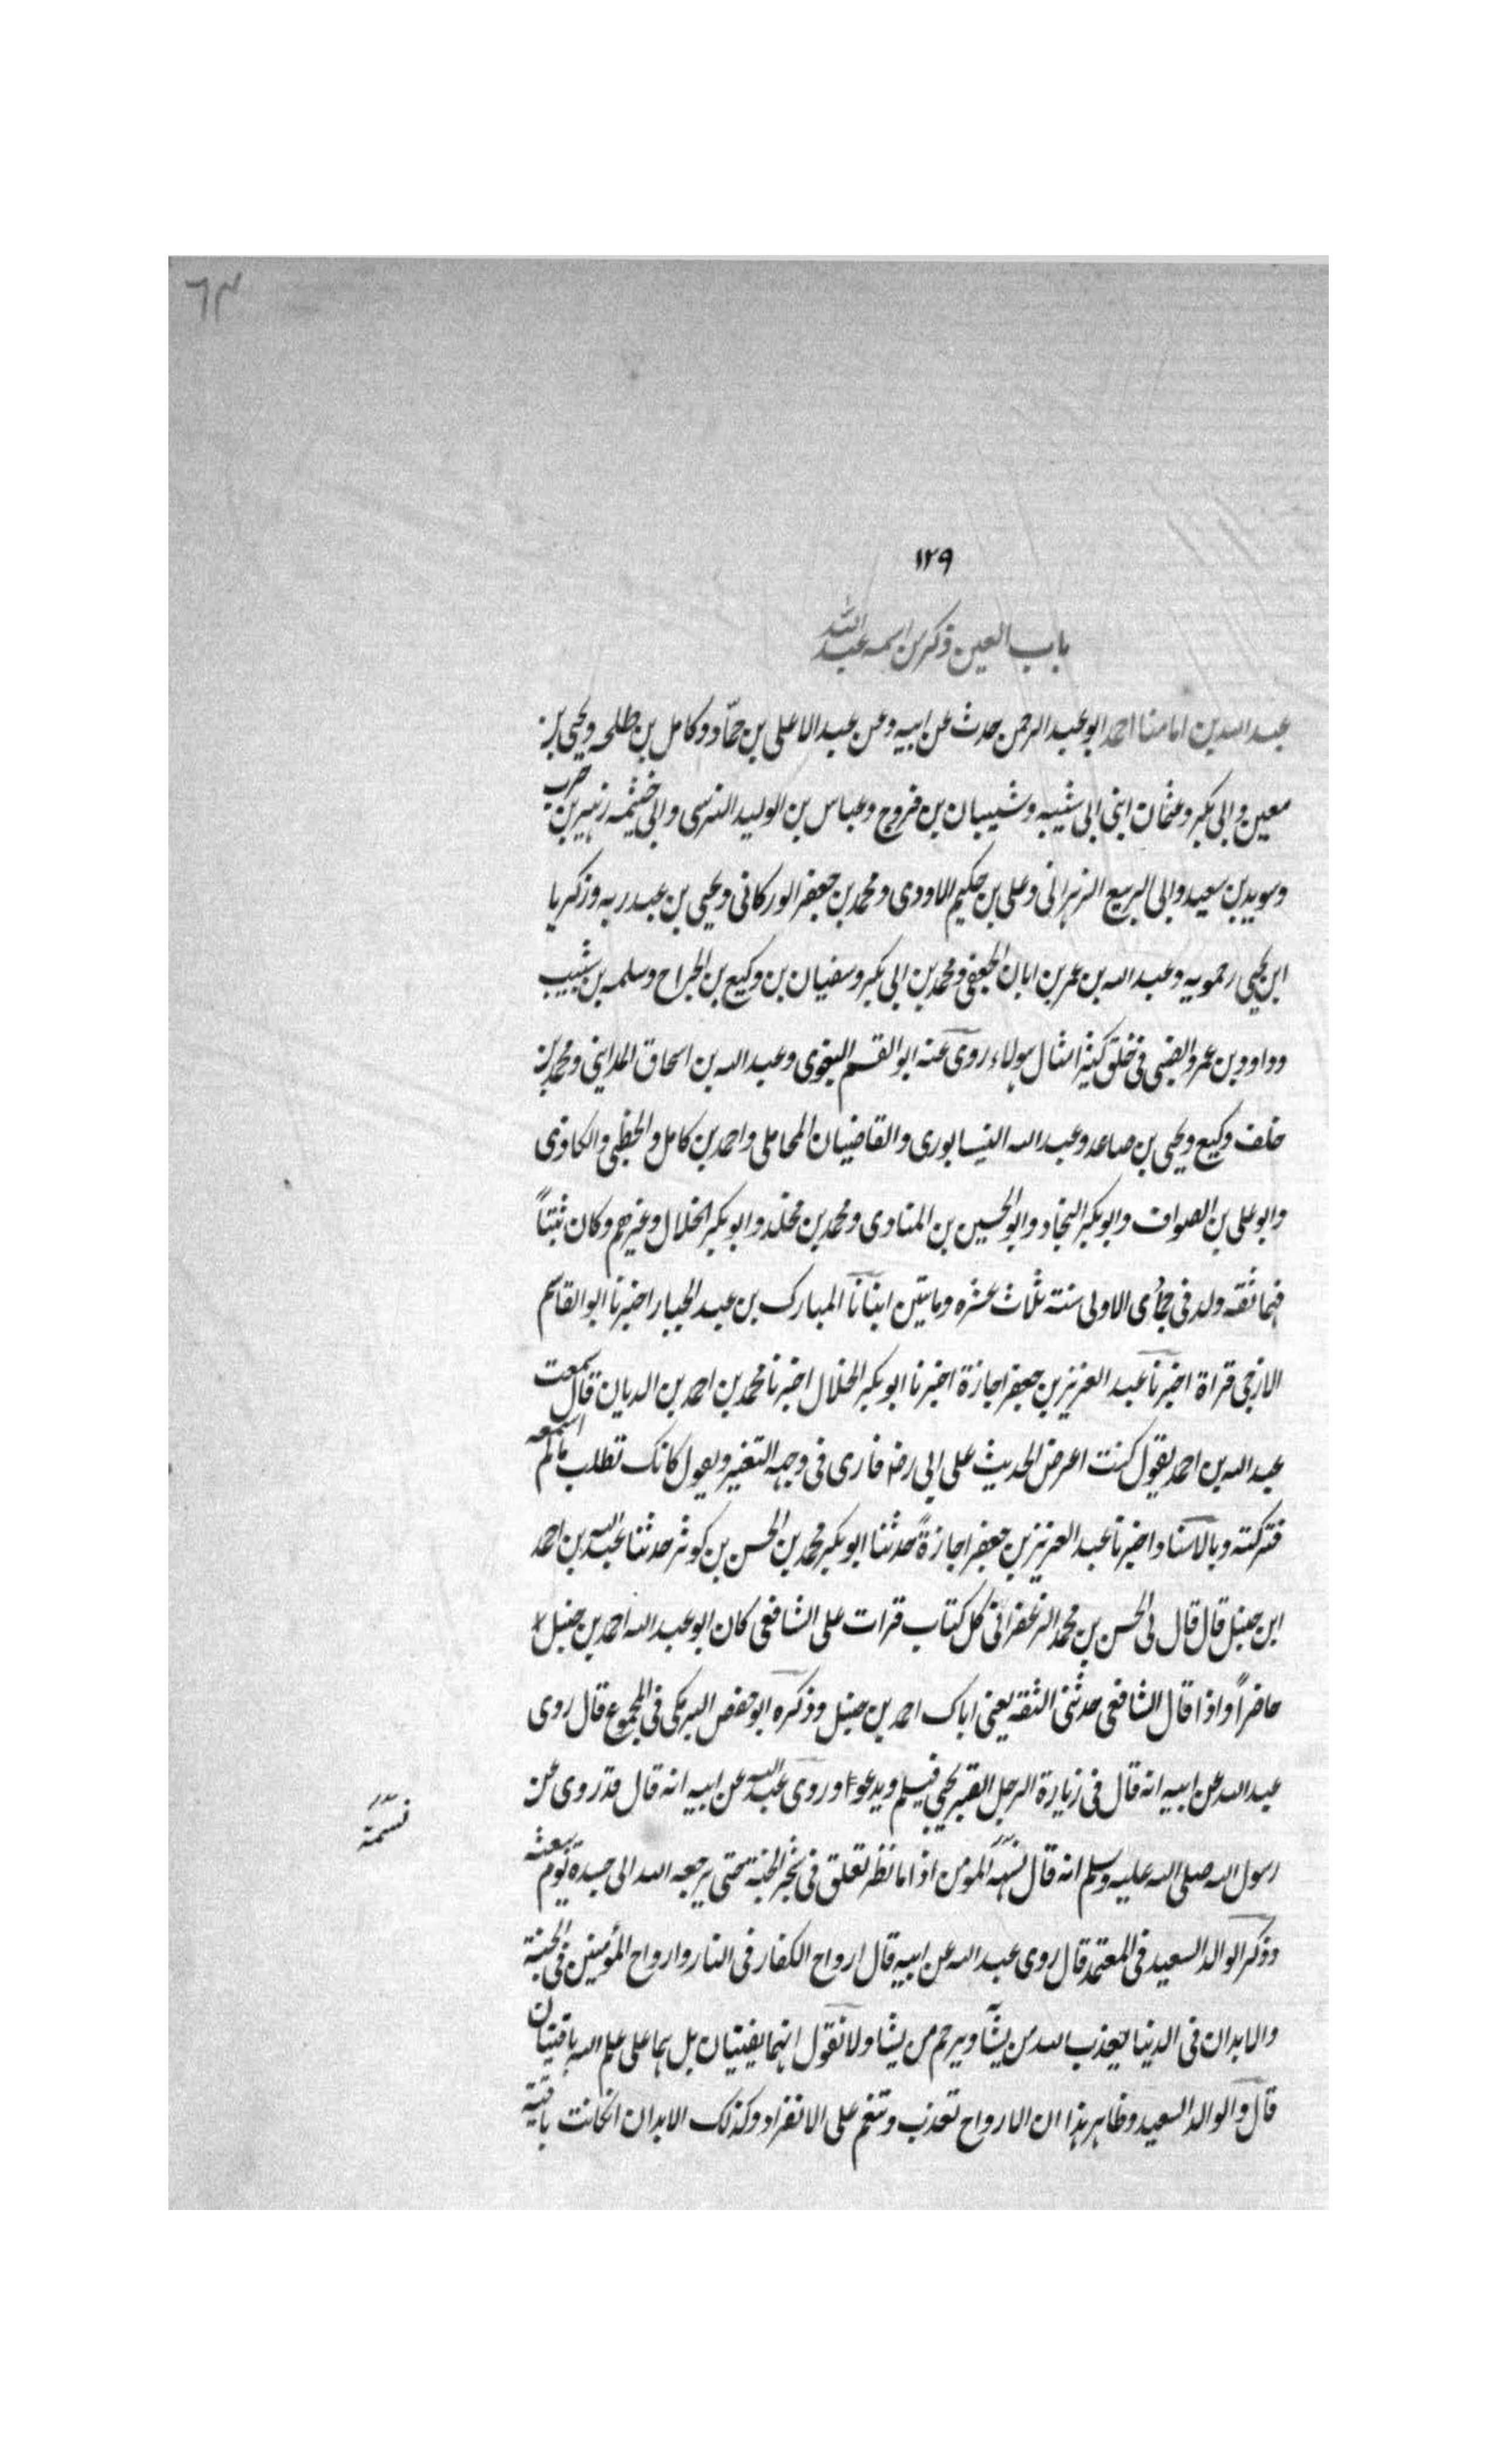 ٦٤
١٢٩
باب العين ذكر من اسمه عبد الله
عبد الله بن امامنا احمد ابو عبد الرحمن حدث عن ابيه وعن عبد الاعلى بن حمّاد وكامل بن طلحه ويحيى بن
معين وابى بكر وعثمان ابنى ابى شيبه وشيبان بن فروخ وعباس بن الوليد النرسى وابى خيثمه زهير بن حرب
وسويد بن سعيد وابى الربيع الزهرانى وعلى بن حكيم الاودى ومحمد بن جعفر الوركانى ويحيى بن عبد ربه وزكريا
ابن يحيى رحمويه وعبد الله بن عمر بن ابان الجعفى ومحمد بن ابى بكر وسفيان بن وكيع بن الجراح وسلمه بن شبيب
وداود بن عمرو الضبى فى خلق كثير امثال هولاء روى عنه ابو القسم البغوى وعبد الله بن اسحاق المداينى ومحمد بن
خلف وكيع ويحيى بن صاعد وعبد الله النيسابورى والقاضيان المحاملى واحمد بن كامل والخطبى والكاوذى
وابو على بن الصواف وابو بكر النجاد وابو الحسين بن المنادى ومحمد بن مخلد وابو بكر الخلال وغيرهم وكان ثبتاً
فهما ثقه ولد فى جمادى الاولى سنته ثلاث عشره ومايتين انبانا المبارك بن عبد الجبار اخبرنا ابو القاسم
الازجى قراة اخبرنا عبد العزيز بن جعفر اجازة اخبرنا ابو بكر الخلال اخبرنا محمد بن احمد بن الديان قال سمعت
عبد الله بن احمد يقول كنت اعرض الحديث على ابى رضه فارى فى وجهه التغير ويقول كانك تطلب مالم اسمعه
فتركته وبالاسناد اخبرنا عبد العزيز بن جعفر اجازةً حدثنا ابو بكر محمد بن الحسن بن كوثر حدثنا عبد الله بن احمد
ابن حنبل قال قال لى الحسن بن محمد الزعفرانى كل كتاب قرات على الشافعى كان ابو عبد الله احمد بن حنبل
حاضراً واذا قال الشافعى حدثنى الثقه يعنى اباك احمد بن حنبل وذكره ابو حفص البرمكى فى المجموع قال روى
عبد الله عن ابيه انه قال فى زيارة الرجل القبر يجى فيسلم ويدعو وروى عبد الله عن ابيه انه قال قد روى عن
نسمة
رسول الله صلى الله عليه وسلم انه قال نسمة المومن اذا مات طير تعلق فى شجر الجنة حتى يرجعه الله الى جسده يوم يبعثه
وذكر الوالد السعيد فى المعتمد قال روى عبد الله عن ابيه قال ارواح الكفار فى النار وارواح المؤمنين فى الجنة
والابدان فى الدنيا يعذب الله من يشآ ويرحم من يشا ولا نقول انهما يفنيان بل هما على علم الله باقيتان
قال والوالد السعيد وظاهر هذا ان الارواح تعذب وتنعم على الانفراد وكذلك الابدان اذا كانت باقية